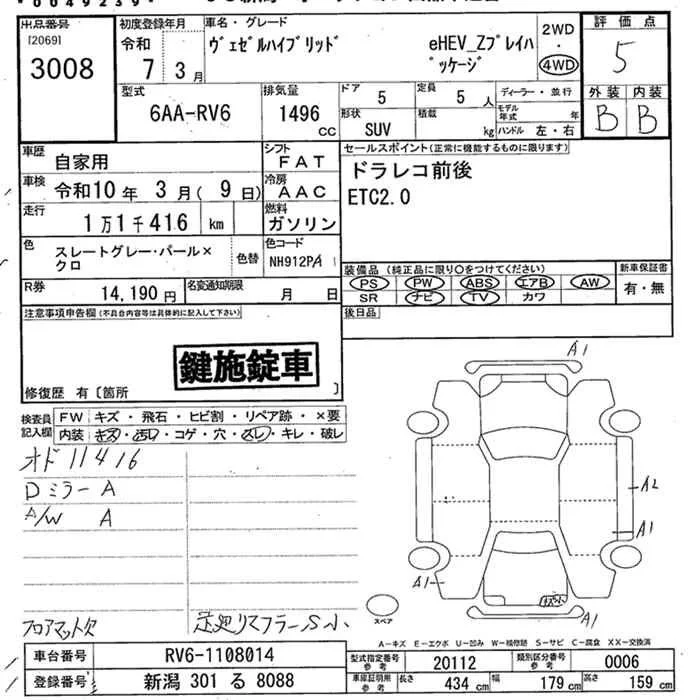 *0049239*
出品番号
[2069]
3008
初度登録年月
令和
7 3月
車名・グレード
ヴェゼルハイブリッド
eHEV_Zプレイパッケージ
2WD
・
4WD
評価点
5
外装 内装
B B
型式
6AA-RV6
排気量
1496 cc
ドア 5
形状 SUV
定員 5 人
積載 kg
ディーラー・並行
モデル年式 年
ハンドル 左・右
車歴 自家用
シフト FAT
車検 令和10年 3月( 9日)
冷房 AAC
走行 1万1千416 km
燃料 ガソリン
色 スレートグレー・パール×クロ
色替
色コード NH912PA 1
セールスポイント(正常に機能するものに限ります)
ドラレコ前後
ETC2.0
装備品(純正品に限り○をつけてください)
PS PW ABS エアB AW
SR ナビ TV カワ
新車保証書
有・無
後日品
R券 14,190円
名変通知期限 月 日
注意事項申告欄(不具合内容等は具体的に記入して下さい)
鍵施錠車
修復歴 有〔箇所 〕
検査員記入欄
FW キズ・飛石・ヒビ割・リペア跡・×要
内装 キズ・汚れ・コゲ・穴・スレ・キレ・破レ
オド11416
Dミラー A
A/W A
フロアマット欠
A1
A2
A1
A1
A1
スペア
A-キズ E-エクボ U-凹み W-補修跡 S-サビ C-腐食 XX-交換済
車台番号 RV6-1108014
登録番号 新潟 301 る 8088
型式指定番号 参考 20112
類別区分番号 参考 0006
車庫証明用 参考 長さ 434 cm 幅 179 cm 高さ 159 cm